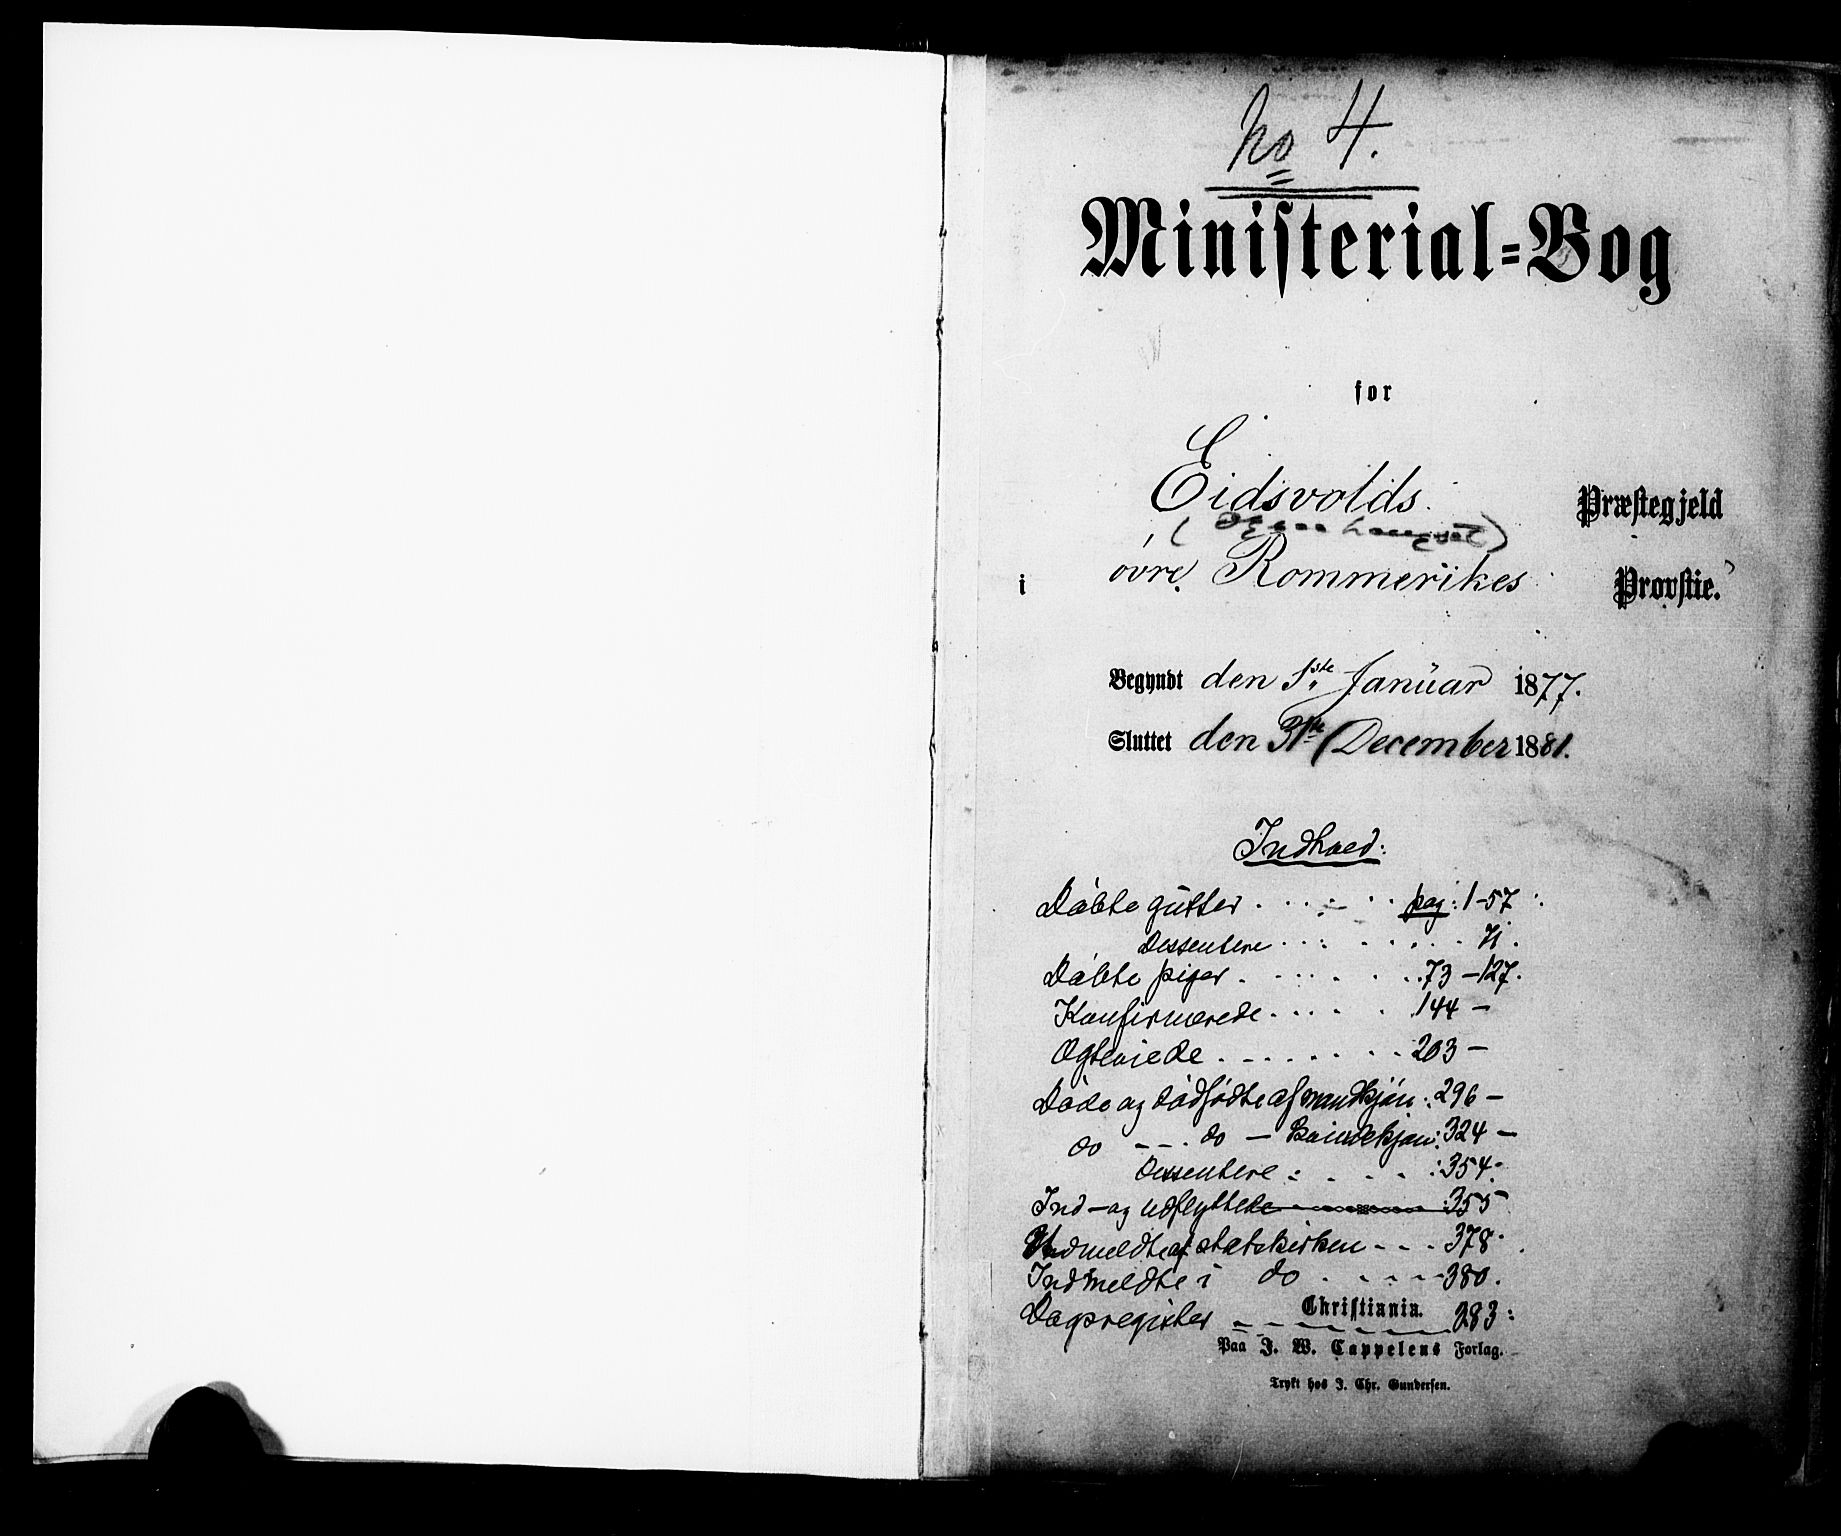 No 4.
Ministerial-Bog
for
Eidsvolds Præstegjeld
(og Langset)
i øvre Rommerikes Provstie.
Begyndt den 1ste Januar 1877.
Sluttet den 31te December 1881.
Indhold:
Døbte gutter . . . . . pag: 1-57
Dissentere . . . . . . 71.
Døbte piger . . . . . 73-127.
Konfirmerede . . . . . 144 -
Ægteviede . . . . . . 203 -
Døde og dødfødte af mandkjøn: 296 -
do - - . do - kvindekjøn: 324 -
Dissentere : . . . : 354.
Ind- og udflyttede 355
Udmeldte af statskirken - - . 378.
Indmeldte i do . . . . 380.
Dagsregister - - - - 383:
Christiania.
Paa J. W. Cappelens Forlag.
Trykt hos J. Chr. Gundersen.